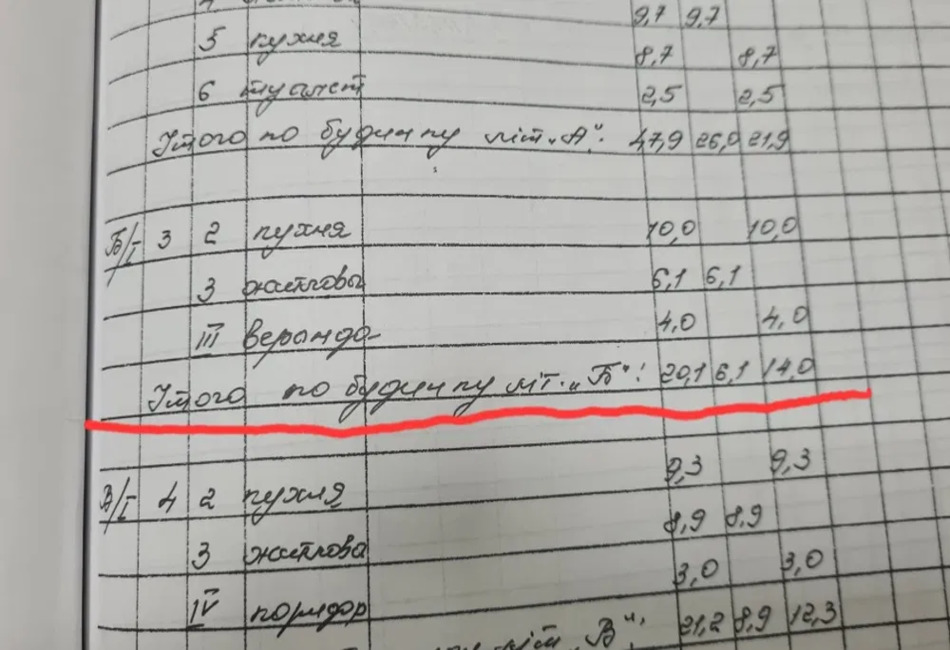 9,7 9,7
5 кухня 8,7 8,7
6 туалет 2,5 2,5
Ітого по будинку літ. „А": 47,9 26,0 21,9
Б/I 3 2 кухня 10,0 10,0
3 житлова 6,1 6,1
III веранда 4,0 4,0
Ітого по будинку літ. „Б": 20,1 6,1 14,0
В/I 4 2 кухня 9,3 9,3
3 житлова 8,9 8,9
IV коридор 3,0 3,0
літ „В": 21,2 8,9 12,3